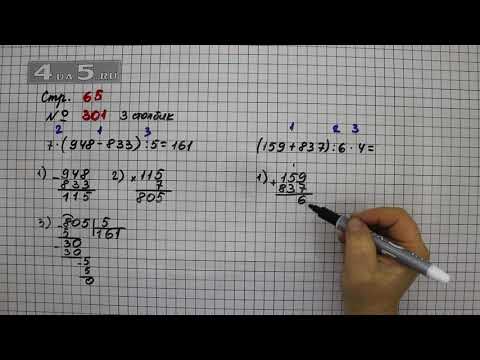 4 ДА 5.RU
Стр. 65
№ 301 3 столбик
2 1 3
7·(948-833):5=161
1) - 948
833
115
2) × 115
7
805
3) - 805 | 5
5 | 161
- 30
30
- 5
5
0
1 2 3
(159+837):6·4=
1) + 159
837
6